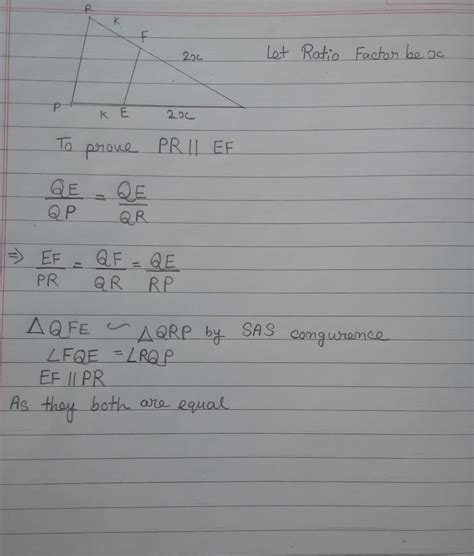 R
K
F
2x
Let Ratio Factor be x
P
K E 2x
To prove PR || EF
QE/QP = QE/QR
⇒ EF/PR = QF/QR = QE/RP
△QFE ∽ △QRP by SAS congurence
∠FQE = ∠RQP
EF || PR
As they both are equal